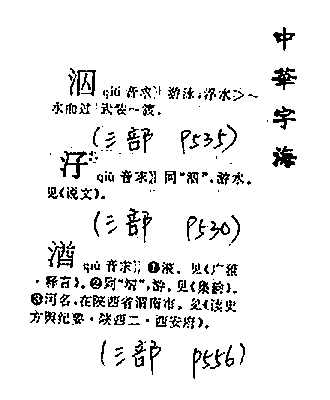 中華字海
泅 qiú 音求 游泳;浮水▷~
水而过│武装~渡。
(氵部 P535)
汓 qiú 音求 同“泅”,游水。
见《说文》。
(氵部 P530)
qiú 音求 ❶液。见《广雅
·释言》。❷同“泅”,游,见《集韵》。
❸河名,在陕西省渭南市。见《读史
方舆纪要·陕西二·西安府》。
(氵部 P556)